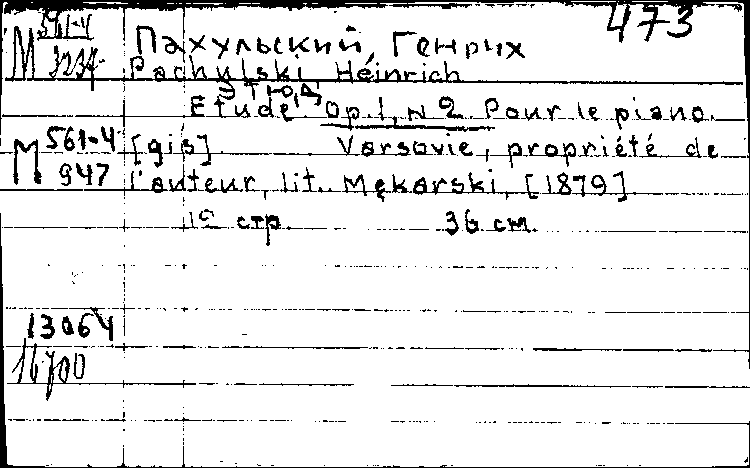 473
М 561-4
3237
Пахульский, Генрих
Pachulski, Heinrich
Этюд,
Etude. Op.1, N 2. Pour le piano.
М 561-4
947
[gis] Varsovie, propriété de
l'auteur, lit. Mękarski, [1879].
12 стр. 36 см.
13064
16700